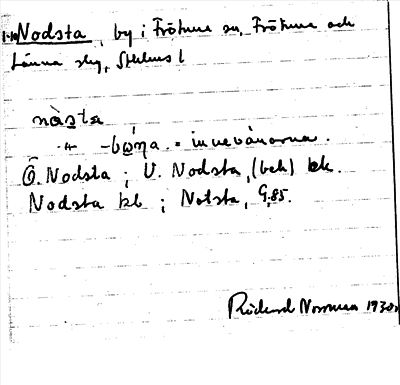 Nodsta, by i Frötuna sn, Frötuna och
Länna slg, Sthlms l
nà̀sta
-"- -bωηa = innevånarna.
Ö. Nodsta ; V. Nodsta, (beb) ek.
Nodsta kb ; Notsta, G.85.
Rickard Norrman 1930.